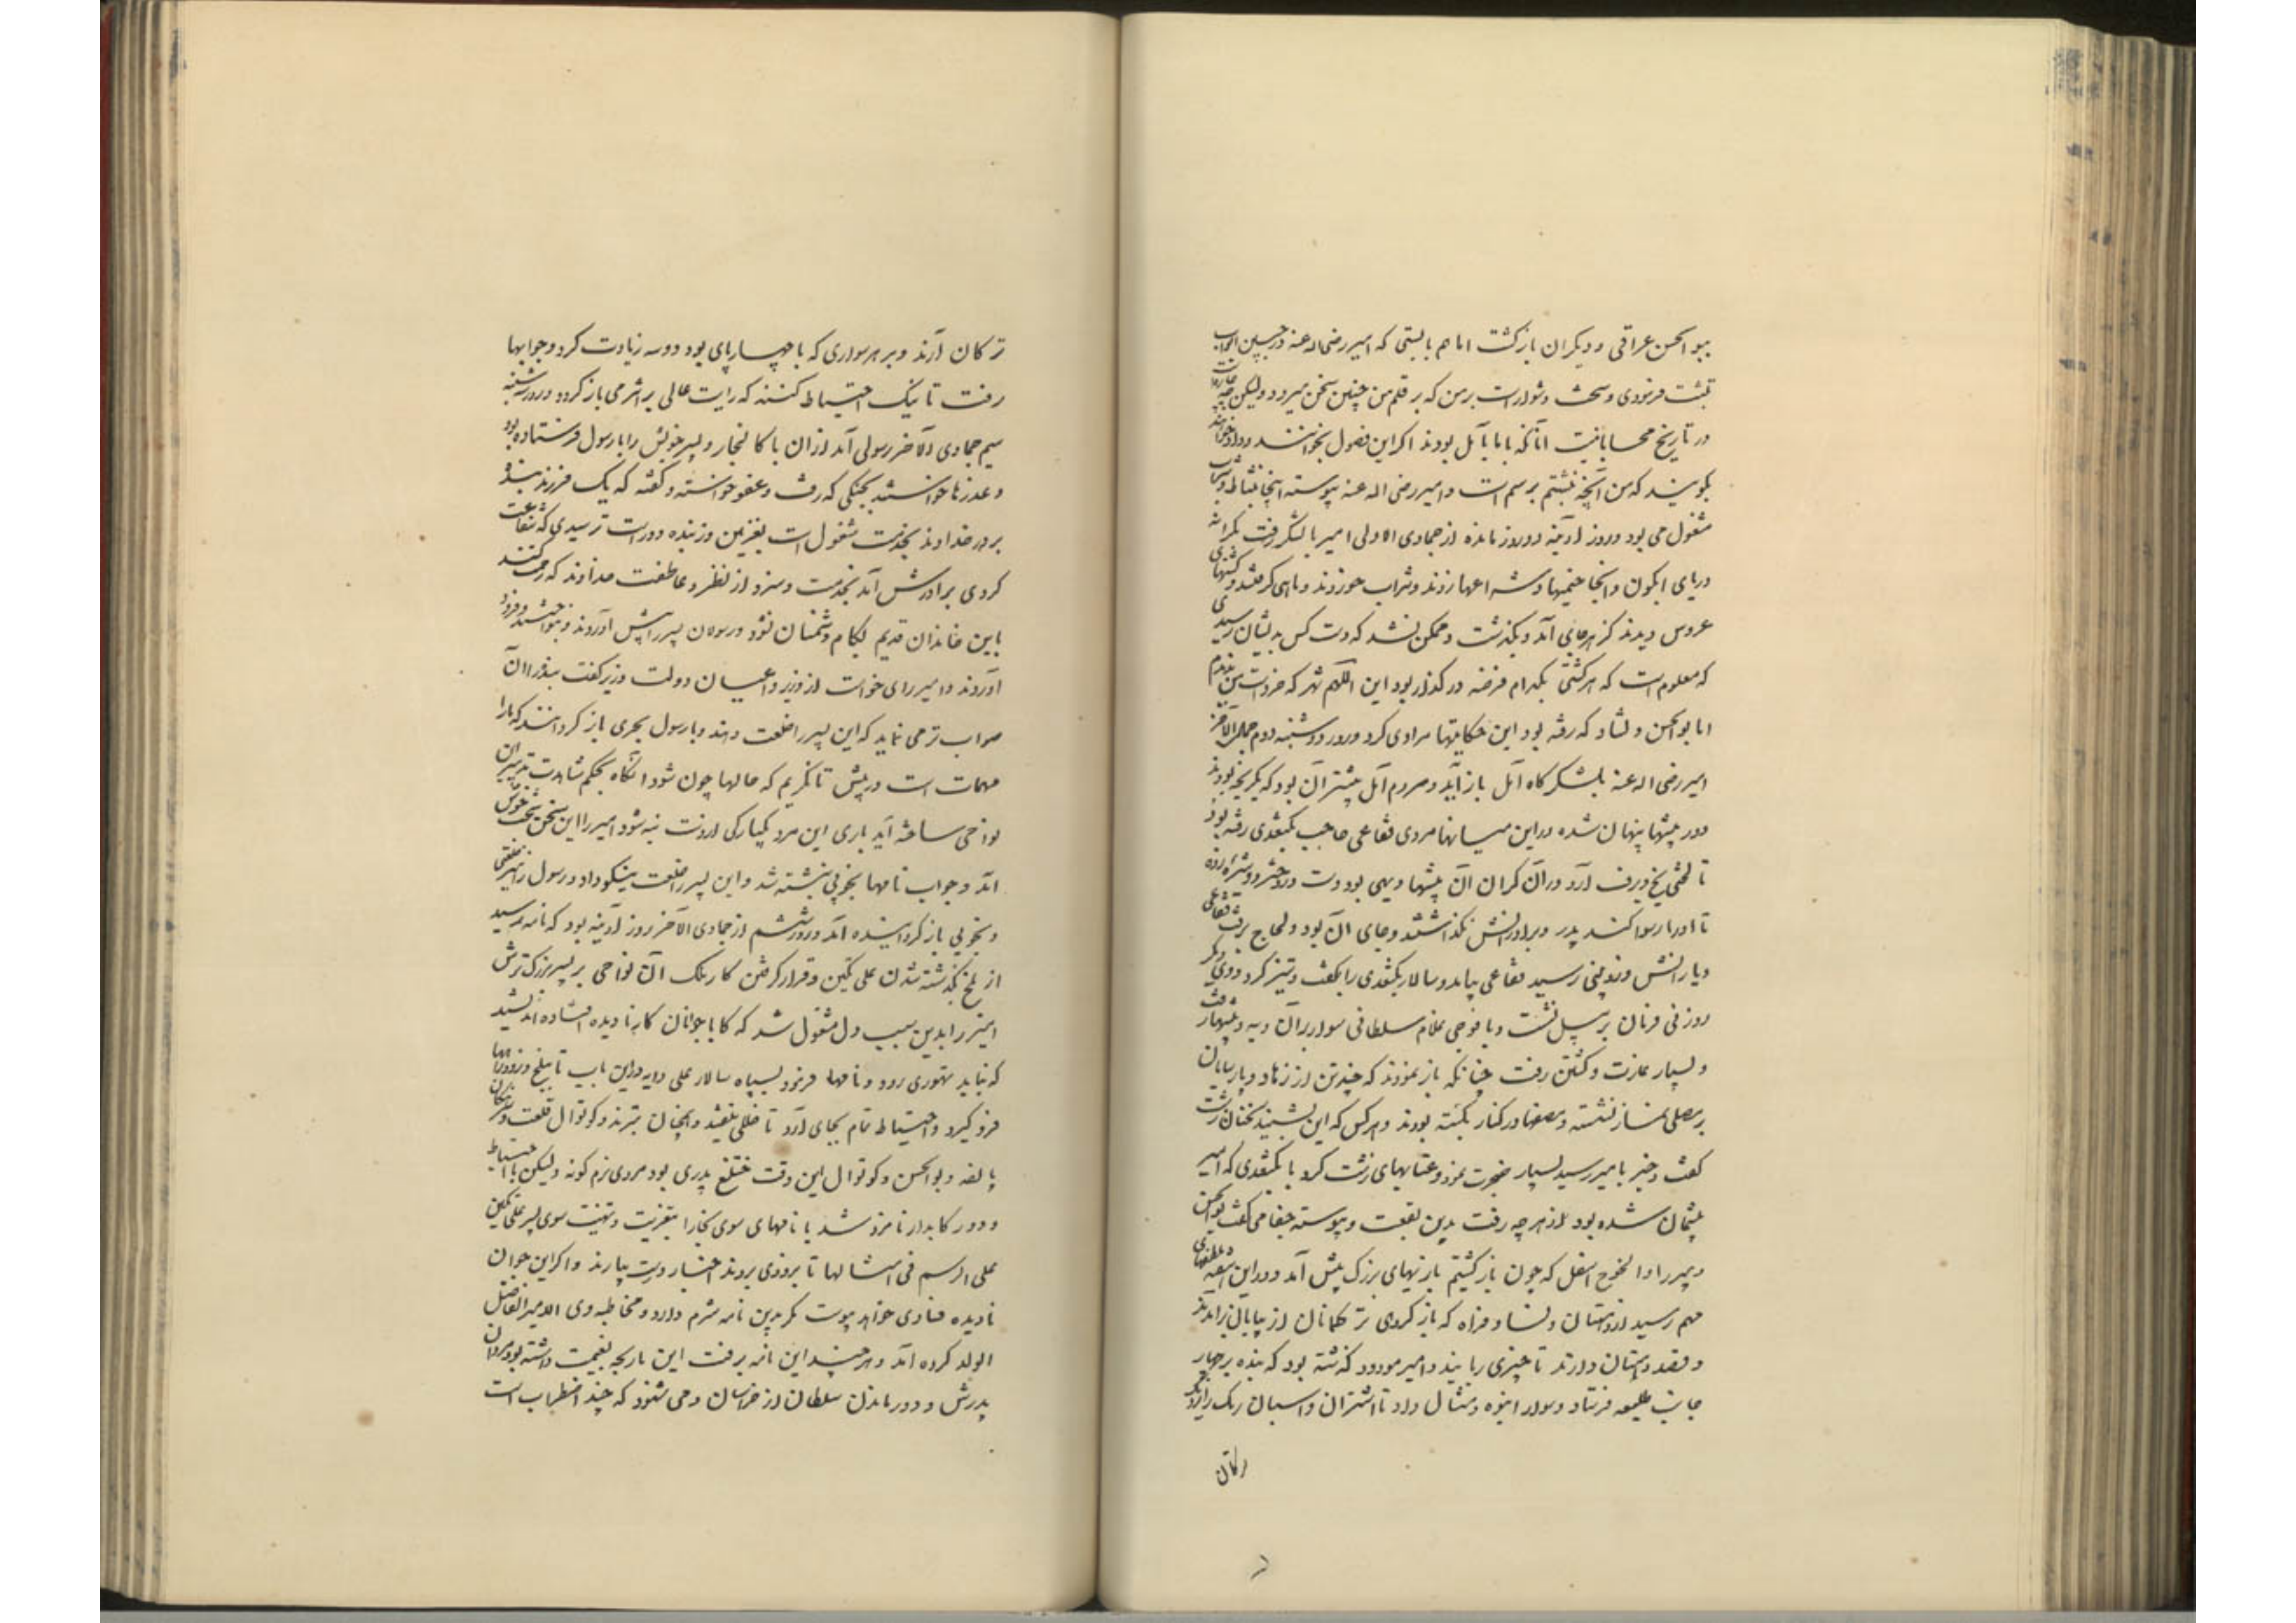 ببو الحسن عراقی و دیکران بازکشت اما هم بایستی که امیر رضی اله عنه در چنین ابواب
تثبت فرمودی و سخت دشوارست برمن که بر قلم من چنین سخن میرود ولیکن چه چاره است
در تاریخ محابا نیست آنانکه با ما بآمل بودند اکر این فصول بخوانند و داد خواهند
بکویند که من آنچه نبشتم برسم است و امیر رضی اله عنه پیوسته اینجا بنشاط و شراب
مشغول می بود و روز آدینه دو روز مانده از جمادی الاولی امیر با لشکر رفت بکرانه
دریای ابکون و آنجا خیمها و شراعها زدند و شراب خوردند و ماهی کرفتند و کشتیهای
عروس دیدند کز هر جای آمد و بکذشت و ممکن نشد که دست کس بدیشان رسیدی
که معلوم است که هر کشتی بکدام فرضه در کذار بود این الکهم شهر که خردست من ندیدم
اما بو الحسن دلشاد که رفته بود این حکایتها مرا وی کرد و روز دوشنبه دوم جمادی الآخر
امیر رضی اله عنه بلشکرکاه آمل باز آمد و مردم آمل پیشتر آن بود که بکریخته بودند
و در بیشها پنهان شده در این میانها مردی فقاعی حاجب بکتغدی رفته بود
تا لختی یخ و برف آرد در آن کران آن بیشها دیهی بود دست در دختر دوشیزه زده
تا او را رسوا کند پدر و برادرانش نکذاشتند و جای آن بود و لجاج برفت فقاعی
و یارانش و زوبینی رسید فقاعی بیامد و سالار بکتغدی را بکفت و تیز کرد و وی دیکر
روز بی فرمان بر پیل نشست و با فوجی غلام سلطانی سوار بر آن دیه و بیشها رفت
و بسیار غارت و کشتن رفت چنانکه باز نمودند که چند تن از زهاد و پارسایان
بر مصلی نماز نشسته و مصحفها در کنار بکشته بودند و هر کس که این بشنید سخنان زشت
کفت و خبر بامیر رسید بسیار ضجرت نمود و عتابهای زشت کرد با بکتغدی که امیر
پشیمان شده بود از هر چه رفت بدین بقعت و پیوسته جفا می کفت بوالحسن
و پیر را و الخوخ اسفل که چون باز کشتیم بازیهای بزرک پیش آمد و در این
مهم رسید از دهستان و نسا و فراوه که باز کروهی ترکمانان از بیابان برآمدند
و قصد دهستان دارند تا چیزی ربایند و امیر مودود نبشته بود که بنده بر چهار
جانب طلیعه فرستاد سوار انبوه و مثال داد تا اشتران و اسبان رمک را نزدیکتر
ترکان
ترکان آرند و بر هر سواری که با چهارپای بود دو سه زیادت کرد و جوابها
رفت تا نیک احتیاط کنند که رایت عالی بر اثر می باز کردد و روز سه شنبه
سیم جمادی الآخر رسولی آمد از آن با کالنجار و پسر خویش را با رسول فرستاده بود
و عذرها خواستند بجنکی که رفت و عفو خواسته و کفته که یک فرزند بنده
بر در خداوند بخدمت مشغول است بغزنین و ز بنده دورست ترسیدی که شفاعت
کردی برادرش آمد بخدمت و سزد از نظر و عاطفت خداوند که رحمت کنند
باین خاندان قدیم بکام دشمنان نشود و رسولان پسر را پیش آوردند و بنواختند و فرود
آوردند و امیر رای خواست از وزیر و اعیان دولت وزیر کفت بنده را آن
صواب تر می نماید که این پسر را خلعت دهند و با رسول بحری باز کردانند که ما را
مهمات است در پیش تا نکریم که حالها چون شود آنکاه بحکم مشاهدت تدبیر این
نواحی ساخته آید باری این مرد یکبارکی از دست نبشود امیر را این سخن سخت خوش
آمد و جواب نامها بخوبی نبشته شد و این پسر را خلعت نیکو داد و رسول را نیز خلعتی
و بخوبی باز کردانیده آمد و روز ششم از جمادی الآخر روز آدینه بود که نامه رسید
از بلخ بکذشته شدن علی تکین و قرار کرفتن کار ملک آن نواحی بر پسر بزرک ترش
امیر را بدین سبب دل مشغول شد که کار با جوانان کار نادیده افتاده اندیشید
که نباید تهوری رود و نامها فرمود بسپاه سالار علی دایه در این باب تا ببلخ رود و راهها
فرو کیرد و احتیاط تمام بجای آرد تا خللی نیفتد و همچنان بترمذ و کوتوال قلعت و سرهنکان
بالفه و بو الحسن و کوتوال این وقت ختلغ پدری بود مردی نرم کونه ولیکن با احتیاط
و دو رکابدار نامزد شد با نامهای سوی بخارا بتعزیت و تهنیت سوی پسر علی تکین
علی الرسم فی امثالها تا بزودی بروند و اخبار درست بیارند و اکر این جوان
نادیده فسادی خواهد پیوست مکر بدین نامه شرم دارد و مخاطبه وی الامیر الفاضل
الولد کرده آمد و هر چند این نامه برفت این ماربچه بغنیمت داشته بود مردن
پدرش و دور ماندن سلطان از خراسان و می شنود که چند اضطراب است